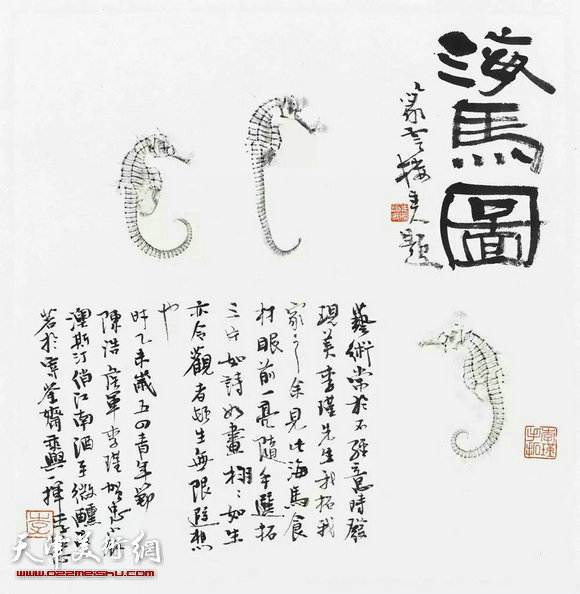 海馬圖
蒙雲樓主題
藝術常於不經意時發
現美李瑾先生我拓我
家之余見此海馬食
材眼前一亮隨手選拓
三片如詩如畫栩栩如生
亦令觀者頓生無限遐想
也
時乙未歲五四青年節
陳浩彦軍李瑾
澳斯汀俏江南酒至微醺
若於齋乘興一揮
李瑾
天津美術網
www.022meishu.com